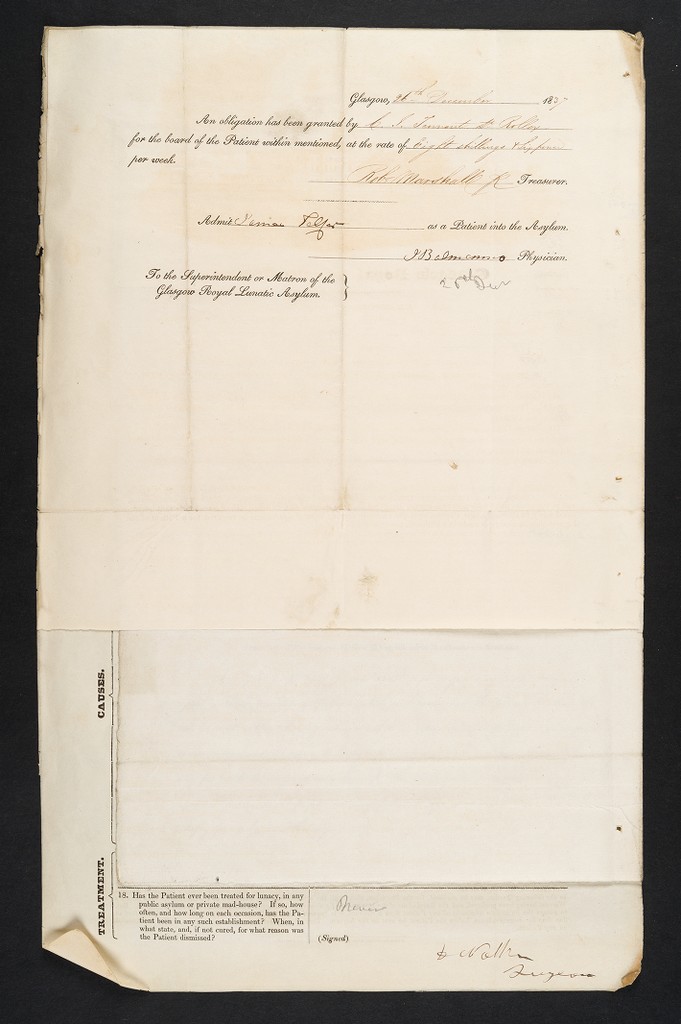 Glasgow, 26th December 1837
An obligation has been granted by C. S. Tennant St Rollox
for the board of the Patient within mentioned, at the rate of Eight shillings & sixpence
per week.
Robt Marshall Treasurer.
Admit Telfer as a Patient into the Asylum.
J Balmanno Physician.
To the Superintendent or Matron of the
Glasgow Royal Lunatic Asylum.
CAUSES.
TREATMENT.
18. Has the Patient ever been treated for lunacy, in any
public asylum or private mad-house? If so, how
often, and how long on each occasion, has the Pa-
tient been in any such establishment? When, in
what state, and, if not cured, for what reason was
the Patient dismissed?
Never
(Signed)
Surgeon